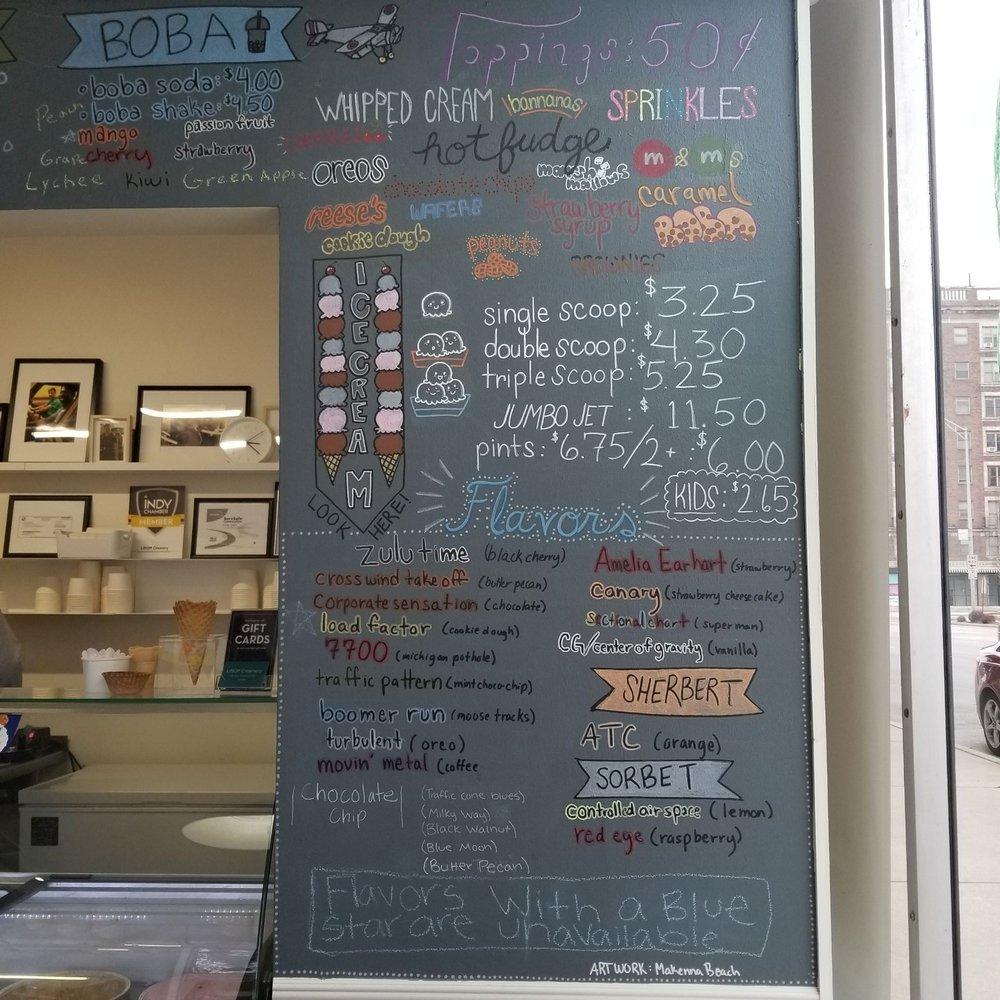 BOBA
boba soda: $4.00
boba shake: $4.50
Peach
mango
passion fruit
Grape
cherry
strawberry
Lychee
Kiwi
Green Apple
Toppings: 50¢
WHIPPED CREAM
bannanas
SPRINKLES
hot fudge
OREOS
marsh mallows
m & m's
chocolate chips
caramel
reese's
WAFERS
strawberry
syrup
BOBA
cookie dough
peanuts
BROWNIES
ICE CREAM
LOOK HERE!
single scoop: $3.25
double scoop: $4.30
triple scoop: $5.25
JUMBO JET : $11.50
pints: $6.75/2+ : $6.00
KIDS: $2.65
Flavors
zulu time (black cherry)
cross wind take off (butter pecan)
corporate sensation (chocolate)
load factor (cookie dough)
7700 (michigan pothole)
traffic pattern (mint choco-chip)
boomer run (moose tracks)
turbulent (oreo)
movin' metal (coffee
Chocolate
Chip
(Traffic cone blues)
(Milky Way)
(Black Walnut)
(Blue Moon)
(Butter Pecan)
Amelia Earhart (strawberry)
canary (strawberry cheesecake)
sectional chart (super man)
CG/center of gravity (vanilla)
SHERBERT
ATC (orange)
SORBET
controlled air space (lemon)
red eye (raspberry)
Flavors With a Blue
star are unavailable
ARTWORK: Makenna Beach
INDY
CHAMBER
MEMBER
GIFT
CARDS